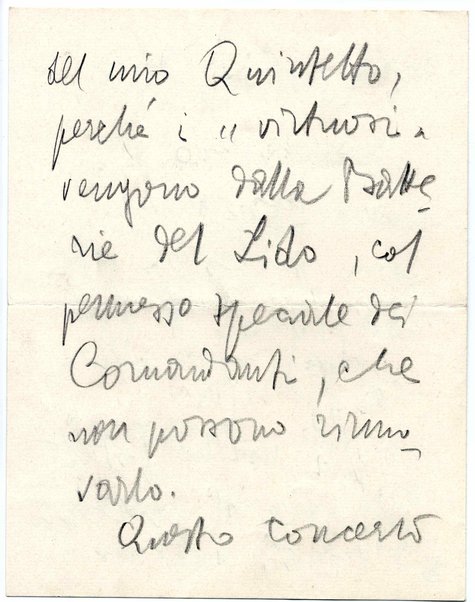 del mio Quintetto,
perché i "virtuosi"
vengono dalla Batte_
rie del Lido, col
permesso speciale dei
Comandanti, che
non possono rinno_
varlo.
Questo concerto